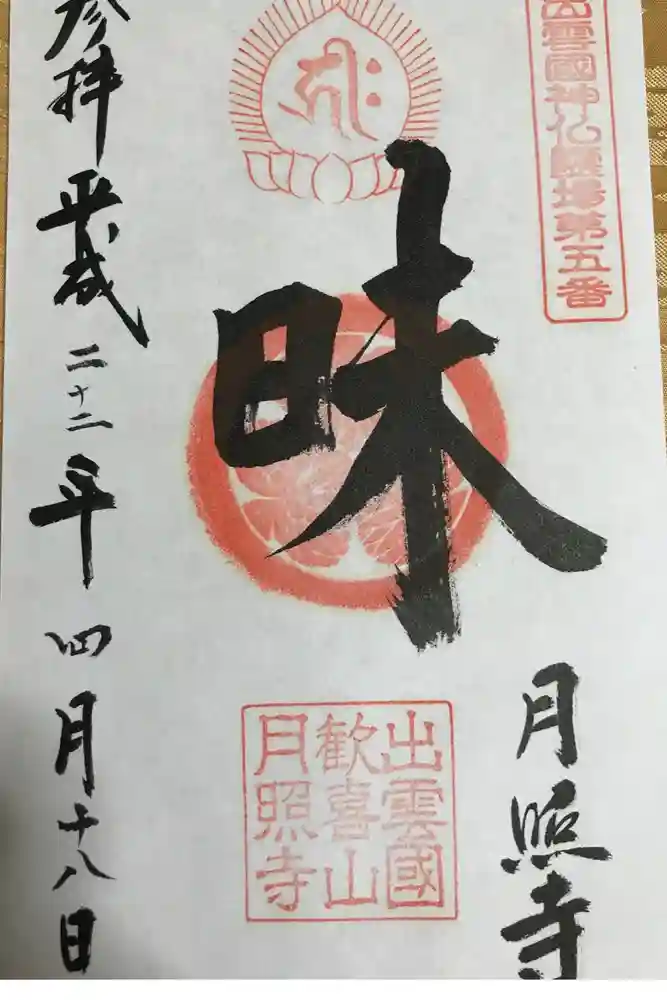 出雲國神仏霊場第五番
月照寺
昧
出雲國
歓喜山
月照寺
参拝
平成二十二年四月十八日